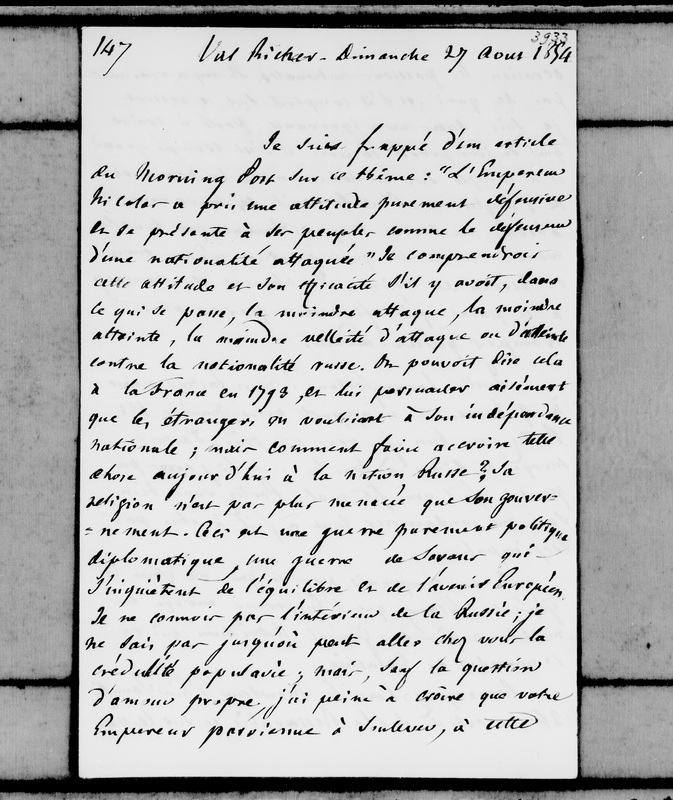 3933
147 Val Richer - Dimanche 27 Aout 1854
Je suis frappé d'un article
du Morning Post sur ce thême : "L'Empereur
Nicolas a pris une attitude purement défensive
et se présente à ses peuples comme le défenseur
d'une nationalité attaquée." Je comprendrois
cette attitude et son efficacité s'il y avoit, dans
ce qui se passe, la moindre attaque, la moindre
atteinte, la moindre velleité d'attaque ou d'atteinte
contre la nationalité russe. On pouvoit dire cela
à la France en 1793, et lui persuader aisément
que les étrangers en vouloient à son indépendance
nationale ; mais comment faire accroire telle
chose aujourd'hui à la nation Russe ? Sa
religion n'est pas plus menacée que son gouver-
-nement. Ceci est une guerre purement politique
diplomatique, une guerre de Savans qui
s'inquiètent de l'équilibre et de l'avenir Européen.
Je ne connois pas l'intérieur de la Russie ; je
ne sais pas jusqu'où peut aller chez vous la
crédulité populaire ; mais, sauf la question
d'amour propre, j'ai peine à croire que votre
Empereur parvienne à soulever, à cette